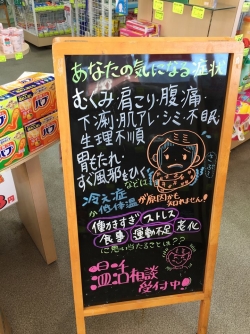 あなたの気になる症状
むくみ・肩こり・腹痛・
下痢・肌アレ・シミ・不眠
生理不順
胃もたれ・
すぐ風邪をひく
などは…
冷え症
や低体温が原因かも知れません!
働きすぎ ストレス
食事 運動不足 老化
に思い当たることは??
温活相談
受付中!!
バブ